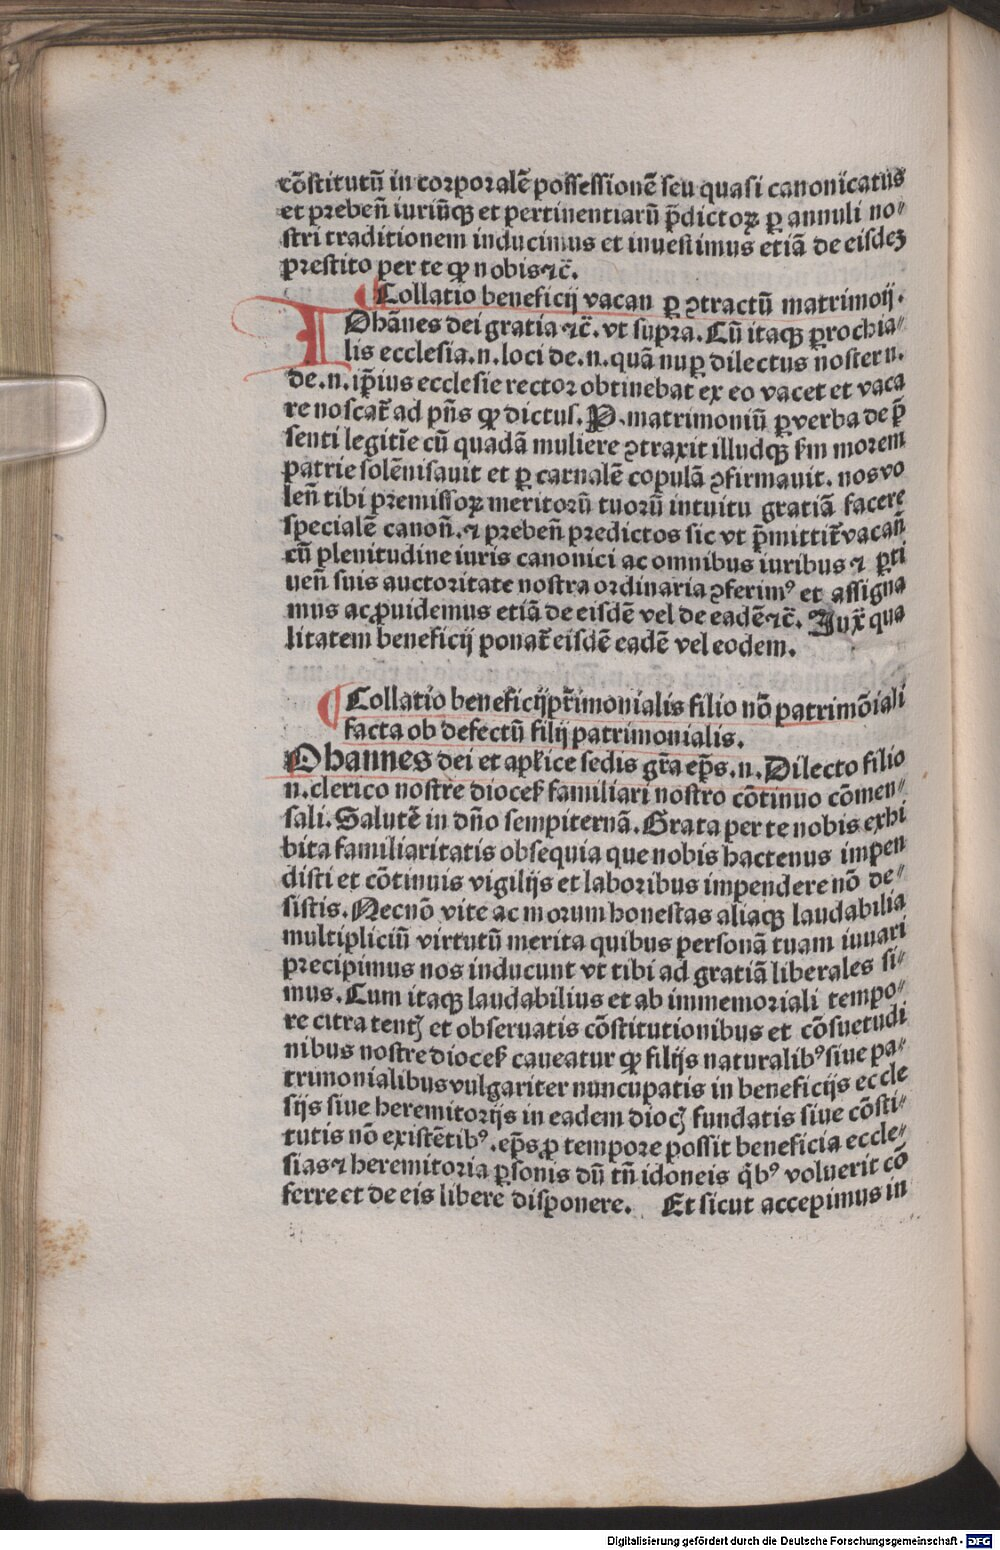 cōstitutū in corporalē possessionē seu quasi canonicatus
et prebeñ iuriūqꝫ et pertinentiarū p̄dictoꝝ ꝑ annuli no⸗
stri traditionem inducimus et inuestimus etiā de eisdeꝫ
prestito per te ꝙ nobis ⁊c̄.
¶ Collatio beneficij vacan ꝑ ꝯtractū matrimoij.
IOhānes dei gratia ⁊c̄. vt supra. Cū itaqꝫ ꝑrochia⸗
lis ecclesia .n. loci de .n. quā nuꝑ dilectus noster n.
de .n. ip̄ius ecclesie rector obtinebat ex eo vacet et vaca
re noscat̄ ad pn̄s ꝙ dictus. P. matrimoniū ꝑ verba de p̄
senti legitīe cū quadā muliere ꝯtraxit illudqꝫ ẜm morem
patrie solēnisauit et ꝑ carnalē copulā ꝯfirmauit. nos vo
leñ tibi premissoꝝ meritorū tuorū intuitu gratiā facere
specialē canoñ. ⁊ prebeñ predictos sic vt p̄mittit̄ vacañ
cū plenitudine iuris canonici ac omnibus iuribus ⁊ ꝑti
ueñ suis auctoritate nostra ordinaria ꝯferimꝰ et assigna
mus ac ꝓuidemus etiā de eisdē vel de eadē ⁊c̄. Jux̄ qua
litatem beneficij ponat̄ eisdē eadē vel eodem.
¶ Collatio beneficij pr̄imonialis filio nō patrimōiali
facta ob defectū filij patrimonialis.
Ohannes dei et apl̄ice sedis gr̄a ep̄s .n. Dilecto filio
n. clerico nostre dioceẜ familiari nostro cōtinuo cōmen⸗
sali. Salutē in dn̄o sempiternā. Grata per te nobis exhi
bita familiaritatis obsequia que nobis hactenus impen
disti et cōtinuis vigilijs et laboribus impendere nō de⸗
sistis. Necnō vite ac morum honestas aliaqꝫ laudabilia
multipliciū virtutū merita quibus personā tuam iuuari
precipimus nos inducunt vt tibi ad gratiā liberales si⸗
mus. Cum itaqꝫ laudabilius et ab immemoriali tempo⸗
re citra tentꝭ et obseruatis cōstitutionibus et cōsuetudi
nibus nostre dioceẜ caueatur ꝙ filijs naturalibꝰ siue pa⸗
trimonialibus vulgariter nuncupatis in beneficijs eccle
sijs siue heremitorijs in eadem diocꝭ fundatis siue cōsti⸗
tutis nō existētibꝰ. ep̄s ꝓ tempore possit beneficia eccle⸗
sias ⁊ heremitoria ꝑsonis dū tn̄ idoneis q̄bꝰ voluerit cō
ferre et de eis libere disponere. Et sicut accepimus in
Digitalisierung gefördert durch die Deutsche Forschungsgemeinschaft - DFG